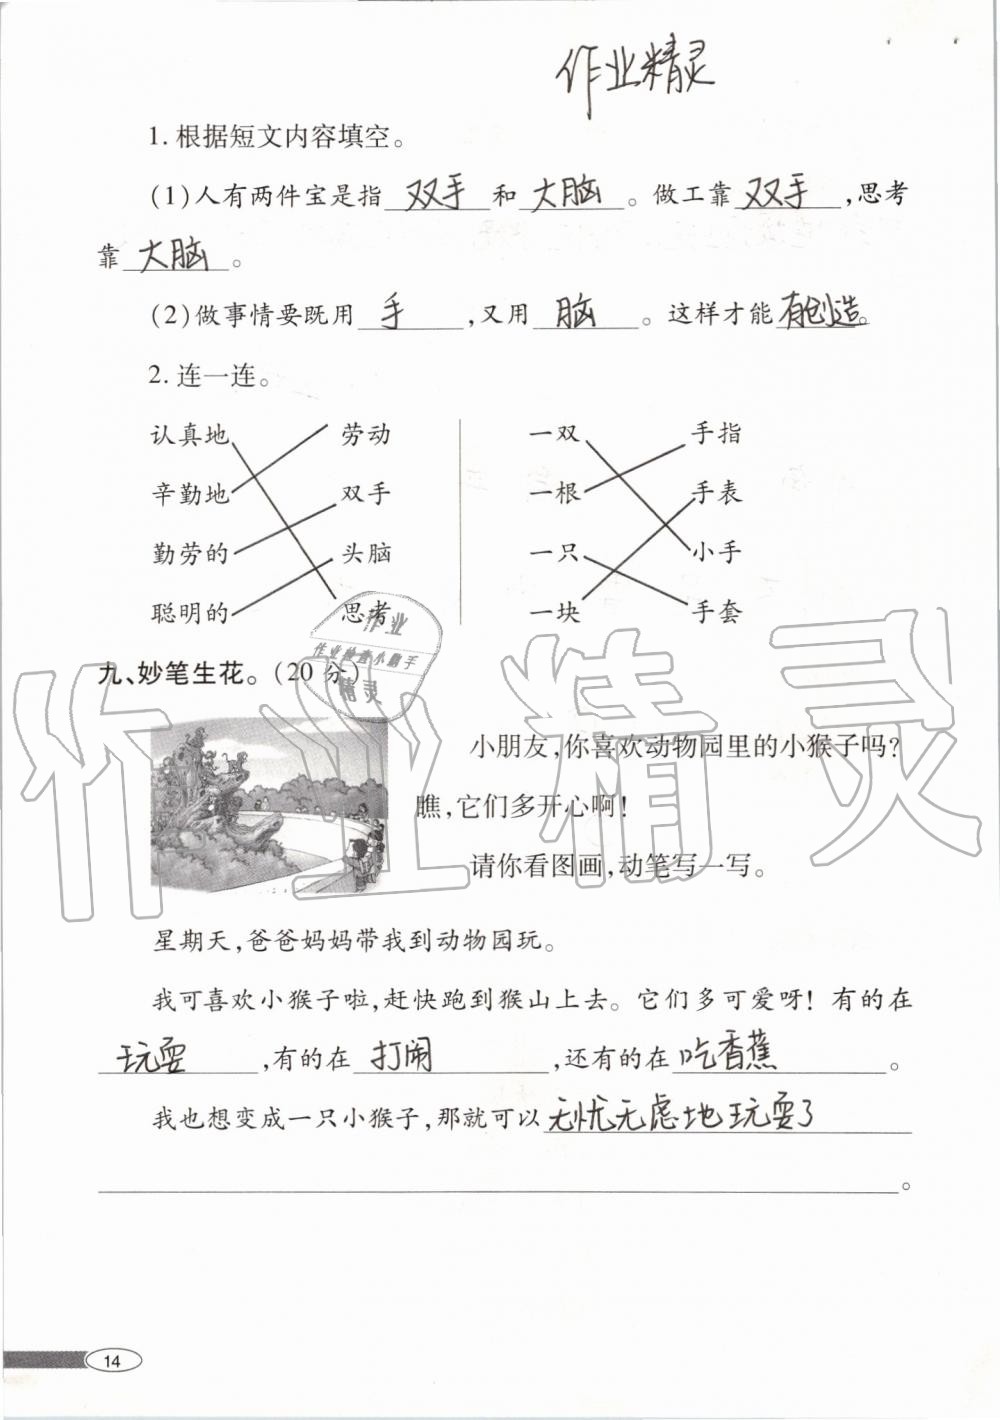 作业精灵
1. 根据短文内容填空。
(1)人有两件宝是指 双手 和 大脑 。做工靠 双手 ,思考
靠 大脑 。
(2)做事情要既用 手 ,又用 脑 。这样才能 有创造。
2. 连一连。
认真地 劳动 一双 手指
辛勤地 双手 一根 手表
勤劳的 头脑 一只 小手
聪明的 思考 一块 手套
作业
作业检查小助手
精灵
九、妙笔生花。(20分)
作业精灵
小朋友,你喜欢动物园里的小猴子吗?
瞧,它们多开心啊!
请你看图画,动笔写一写。
星期天,爸爸妈妈带我到动物园玩。
我可喜欢小猴子啦,赶快跑到猴山上去。它们多可爱呀!有的在
玩耍 ,有的在 打闹 ,还有的在 吃香蕉 。
我也想变成一只小猴子,那就可以 无忧无虑地玩耍了
。
14